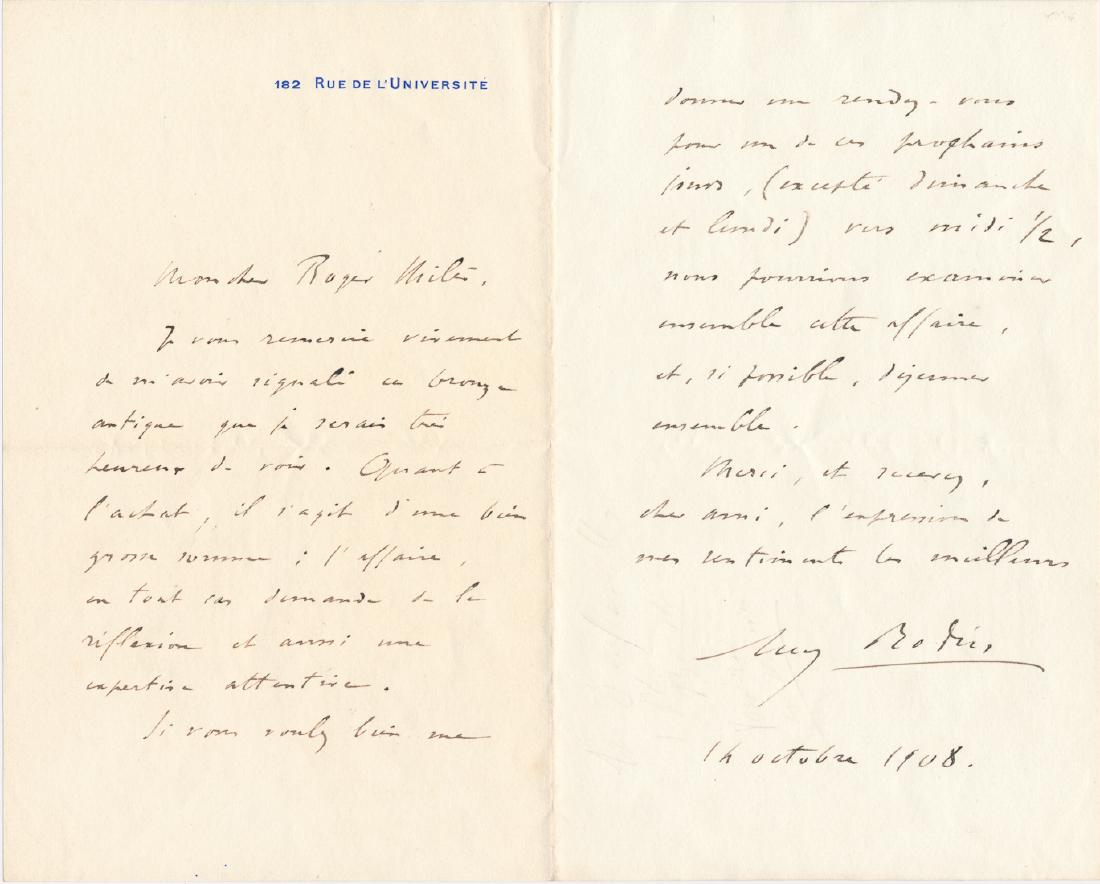 182 RUE DE L'UNIVERSITÉ
Mon cher Roger Milès,
Je vous remercie vivement
de m'avoir signalé ce bronze
antique que je serais très
heureux de voir. Quant à
l'achat, il s'agit d'une bien
grosse somme ; l'affaire,
en tout cas demande de la
réflexion et aussi une
expertise attentive.
Si vous voulez bien me
donner un rendez-vous
pour un de ces prochains
jours, (excepté dimanche
et lundi) vers midi 1/2,
nous pourrions examiner
ensemble cette affaire,
et, si possible, déjeuner
ensemble.
Merci, et recevez,
cher ami, l'expression de
mes sentiments les meilleurs
Aug Rodin
14 octobre 1908.